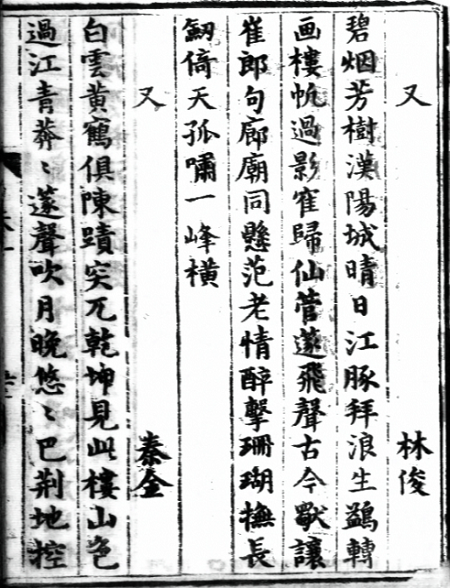 又 林俊
碧烟芳樹漢陽城晴日江豚拜浪生鷁轉
画樓帆過影寉歸仙管篴飛聲古今獻讓
崔郎句廊廟同懸范老情醉擊珊瑚撫長
劒倚天孤嘯一峰橫
又 秦金
白雲黄鶴俱陳蹟突兀乾坤見此樓山色
過江青莽〻篴聲吹月晚悠〻巴荆地控